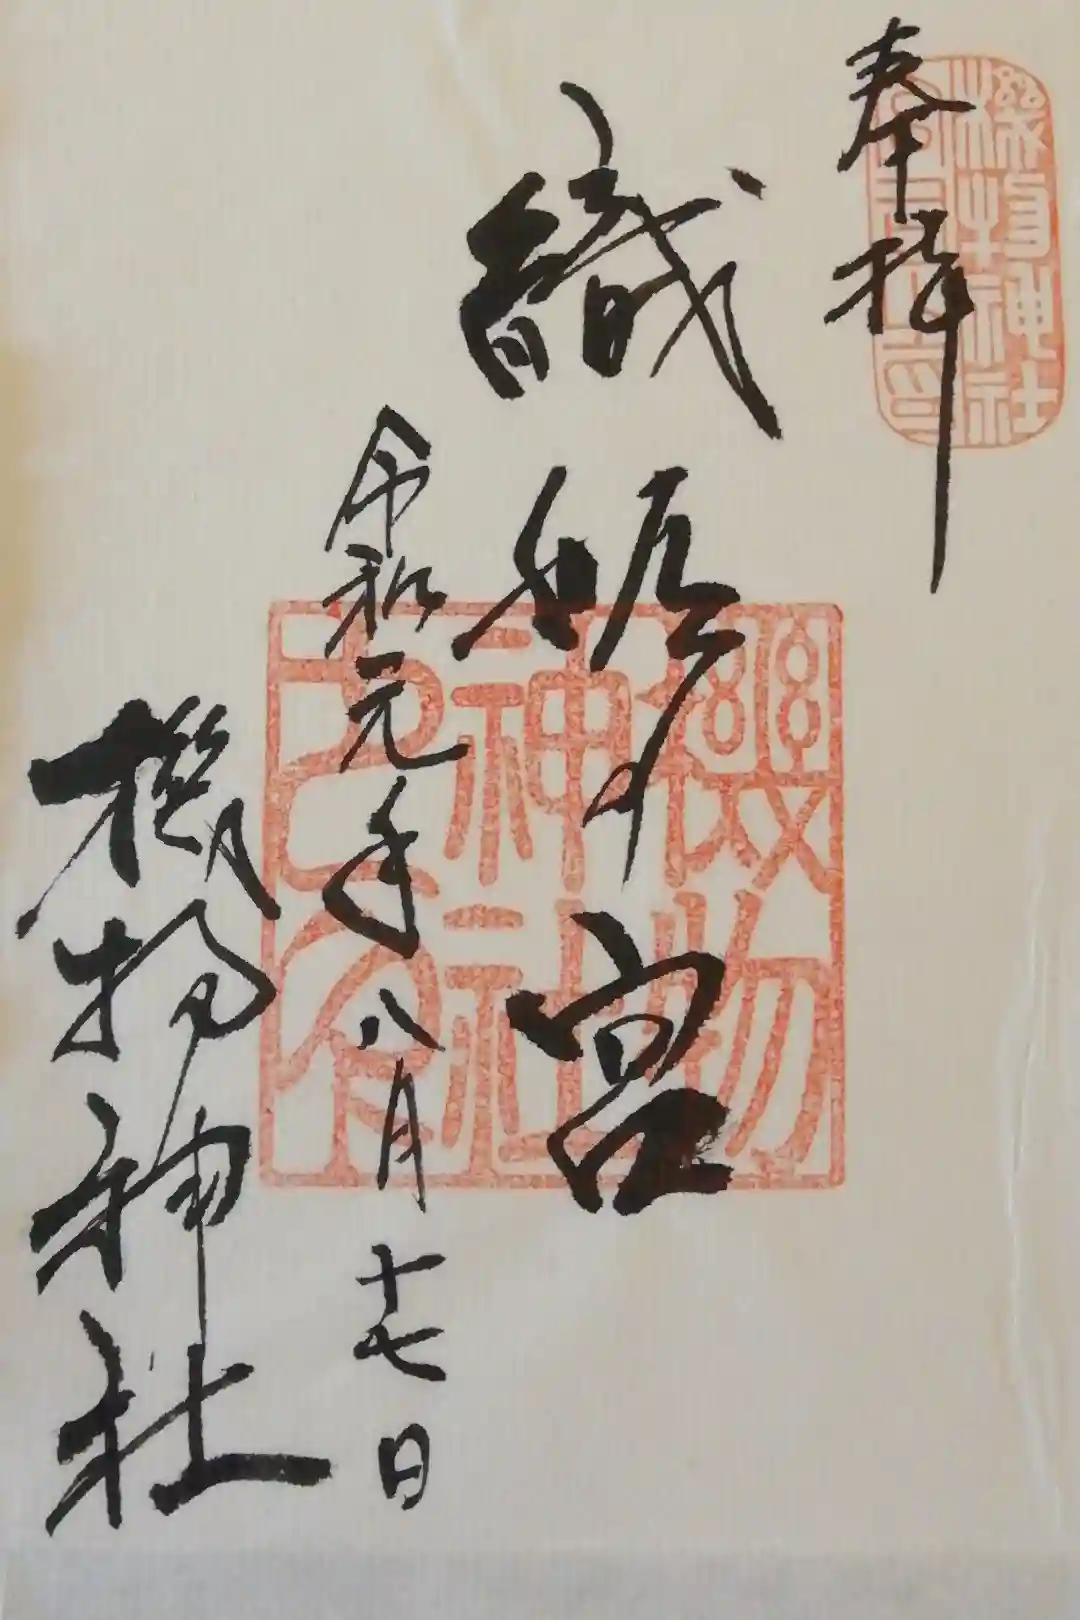 奉拝
機物神社
織姫の宮
機物神社
令和元年八月十七日
機物神社